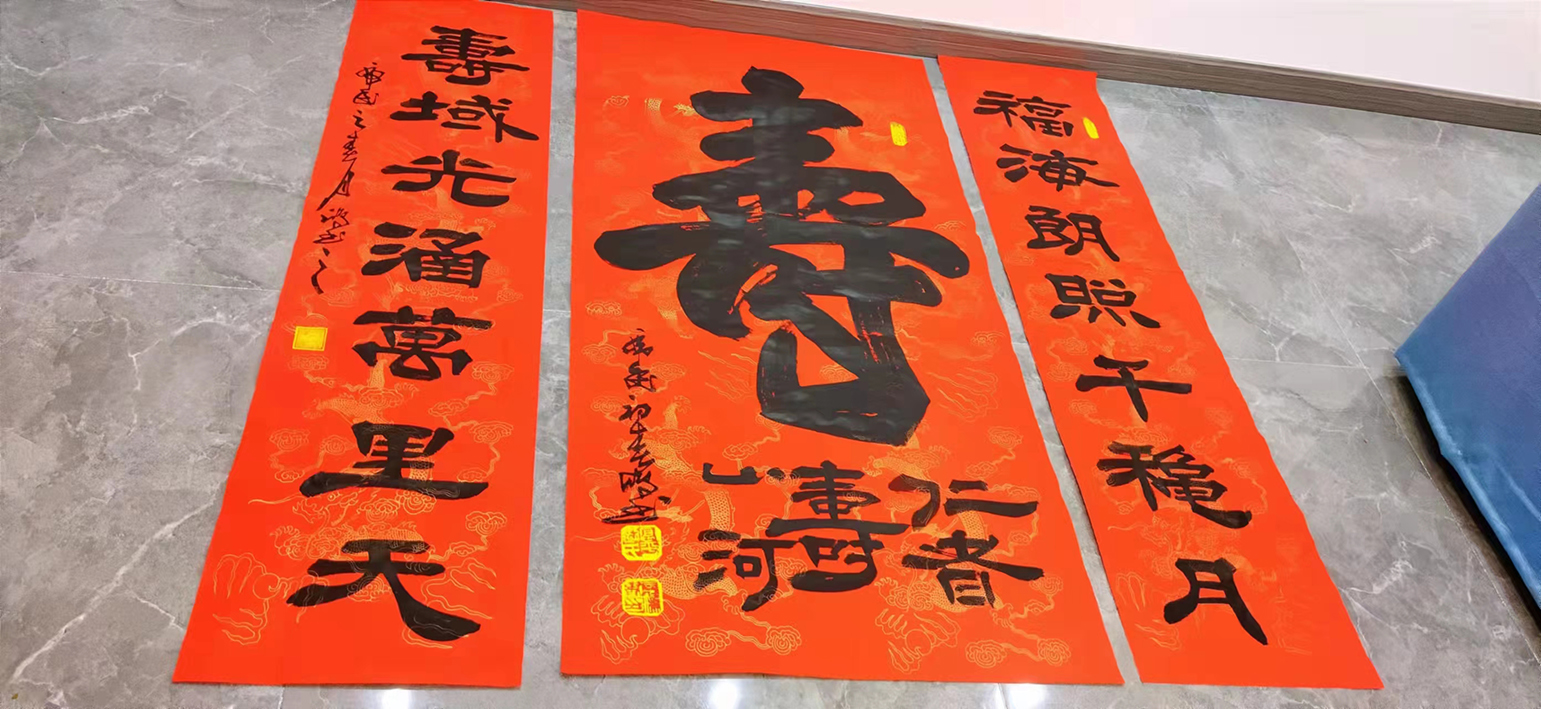 福海朗照千穐月
壽
仁者
壽
山河
初春
壽域光涵萬里天
之春月